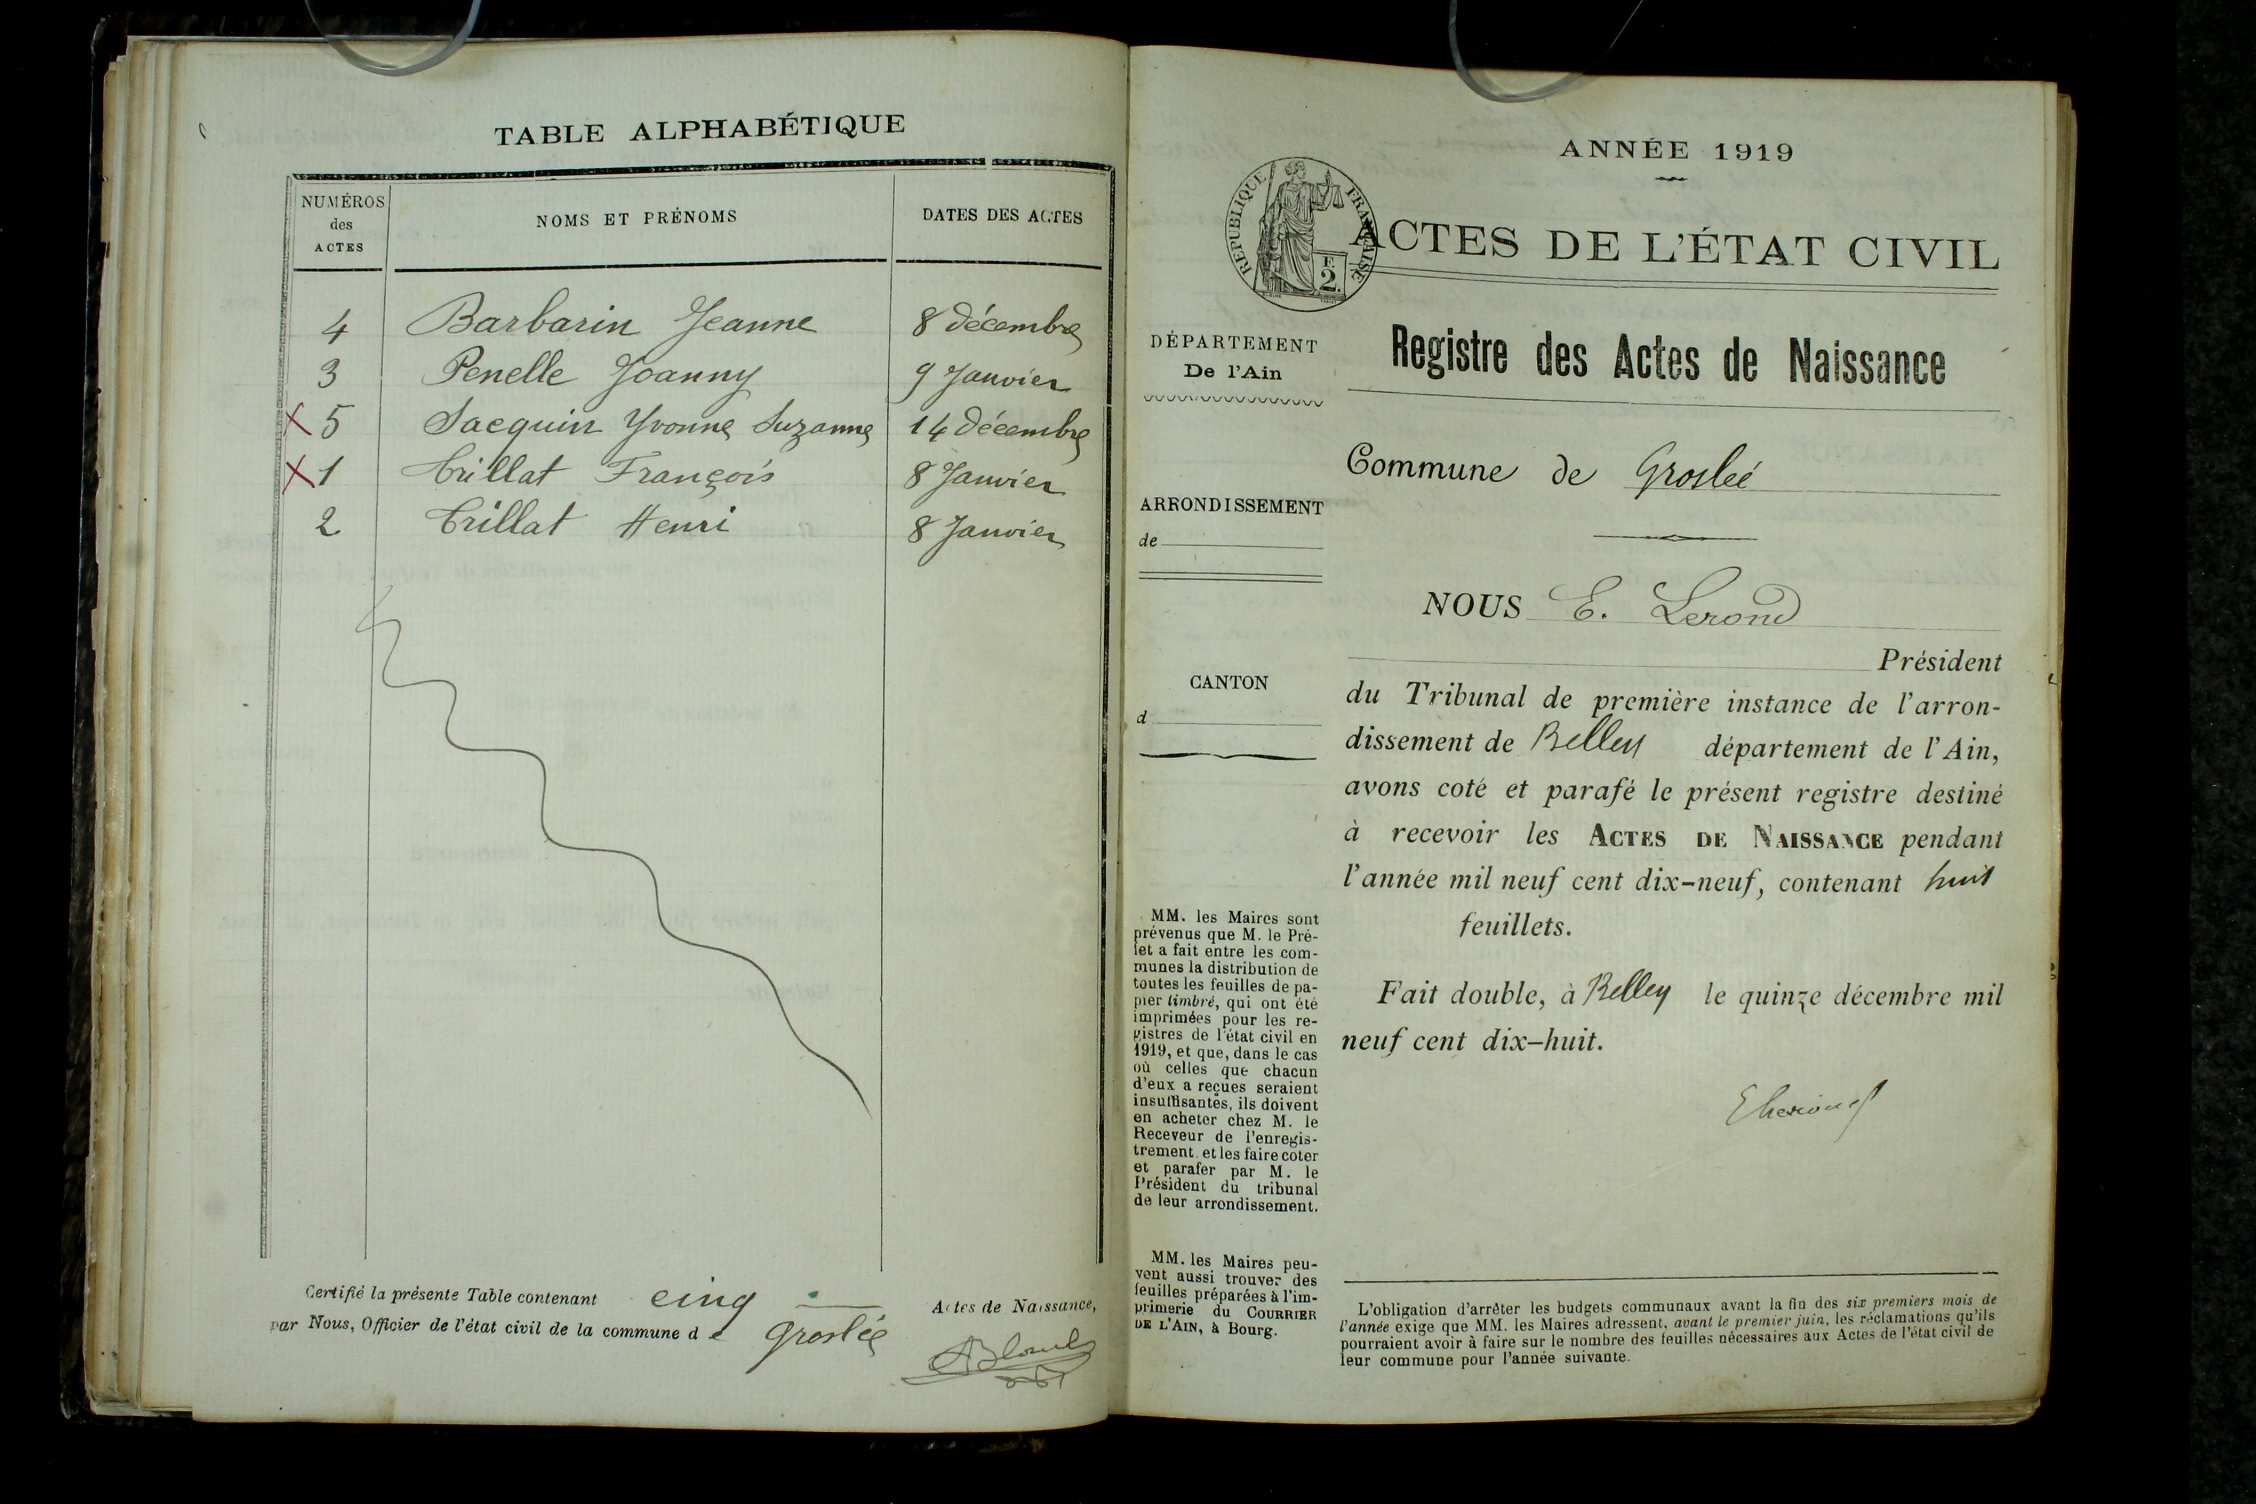 TABLE ALPHABÉTIQUE
NUMÉROS
des
ACTES
NOMS ET PRÉNOMS
DATES DES ACTES
4 Barbarin Jeanne 8 décembre
3 Penelle Joanny 9 Janvier
X 5 Sacquin Yvonne Suzanne 14 décembre
X 1 Trillat François 8 Janvier
2 Trillat Henri 8 Janvier
Certifié la présente Table contenant cinq Actes de Naissance,
par Nous, Officier de l'état civil de la commune de Groslée
ANNÉE 1919
RÉPUBLIQUE FRANÇAISE
F.
2.
ACTES DE L'ÉTAT CIVIL
DÉPARTEMENT
De l'Ain
Registre des Actes de Naissance
Commune de Groslée
ARRONDISSEMENT
de
NOUS E. Lerond
Président
CANTON
d
du Tribunal de première instance de l'arron-
dissement de Belley département de l'Ain,
avons coté et parafé le présent registre destiné
à recevoir les ACTES DE NAISSANCE pendant
l'année mil neuf cent dix-neuf, contenant huit
feuillets.
Fait double, à Belley le quinze décembre mil
neuf cent dix-huit.
MM. les Maires sont
prévenus que M. le Pré-
fet a fait entre les com-
munes la distribution de
toutes les feuilles de pa-
pier timbré, qui ont été
imprimées pour les re-
gistres de l'état civil en
1919, et que, dans le cas
où celles que chacun
d'eux a reçues seraient
insuffisantes, ils doivent
en acheter chez M. le
Receveur de l'enregis-
trement. et les faire coter
et parafer par M. le
Président du tribunal
de leur arrondissement.
MM. les Maires peu-
vent aussi trouver des
feuilles préparées à l'im-
primerie du COURRIER
DE L'AIN, à Bourg.
L'obligation d'arrêter les budgets communaux avant la fin des six premiers mois de
l'année exige que MM. les Maires adressent, avant le premier juin, les réclamations qu'ils
pourraient avoir à faire sur le nombre des feuilles nécessaires aux Actes de l'état civil de
leur commune pour l'année suivante.